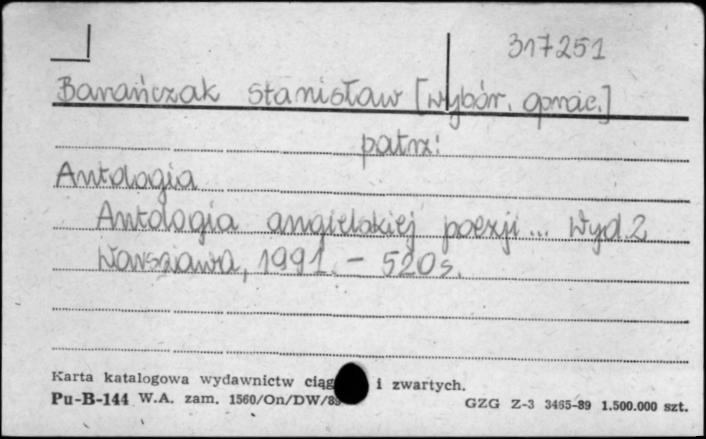 317251
Barańczak Stanisław [wybór, oprac.]
patrz:
Antologia
Antologia angielskiej poezji... Wyd.2
Warszawa, 1991. - 520 s.
Karta katalogowa wydawnictw i zwartych.
Pu-B-144 W.A. zam. 1560/On/DW/89
GZG Z-3 3465-89 1.500.000 szt.